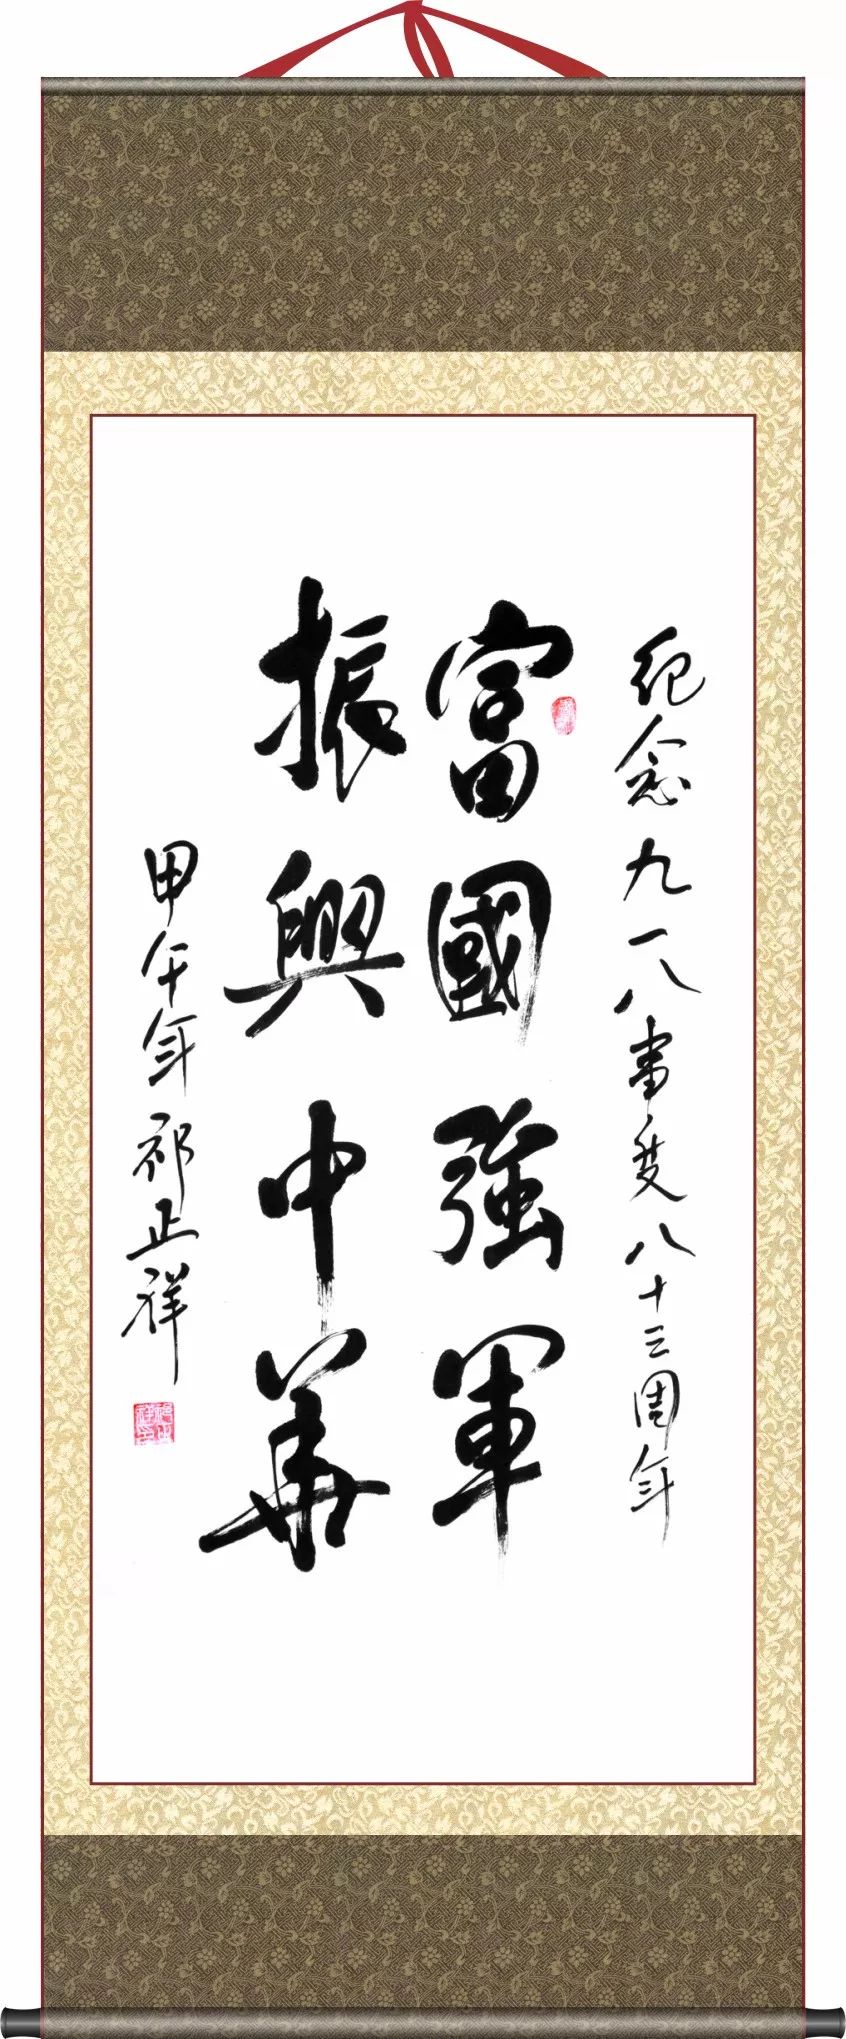 纪念九一八事变八十三周年
富國強軍
振興中華
甲午年祁正祥